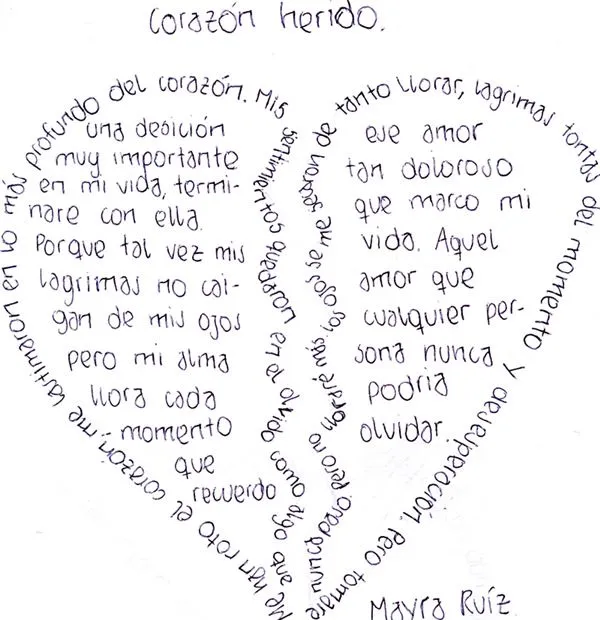 Corazón herido.
Me han roto el corazón, me lastimaron en lo más profundo del corazón. Mis
en la olvido como algo que
nunca pero no lloraré más, ojos se me secaron de
tanto llorar, lagrimas tontas del momento y desesperación. Pero tomare
una desición
muy importante
en mi vida, termi-
nare con ella.
Porque tal vez mis
lagrimas no cai-
gan de mis ojos
pero mi alma
llora cada
momento
que
recuerdo
ese amor
tan doloroso
que marco mi
vida. Aquel
amor que
cualquier per-
sona nunca
podria
olvidar.
Mayra Ruíz.